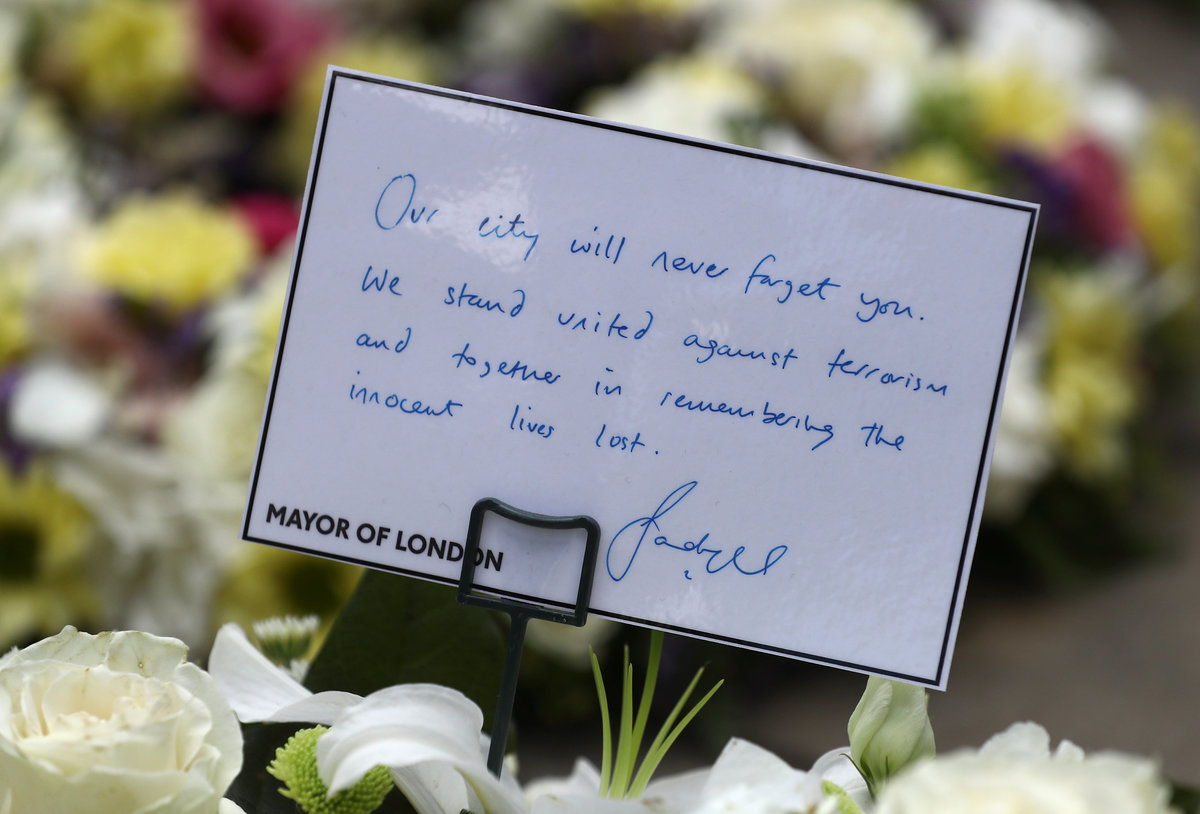 Our city will never forget you.
We stand united against terrorism
and together in remembering the
innocent lives lost.
MAYOR OF LONDON